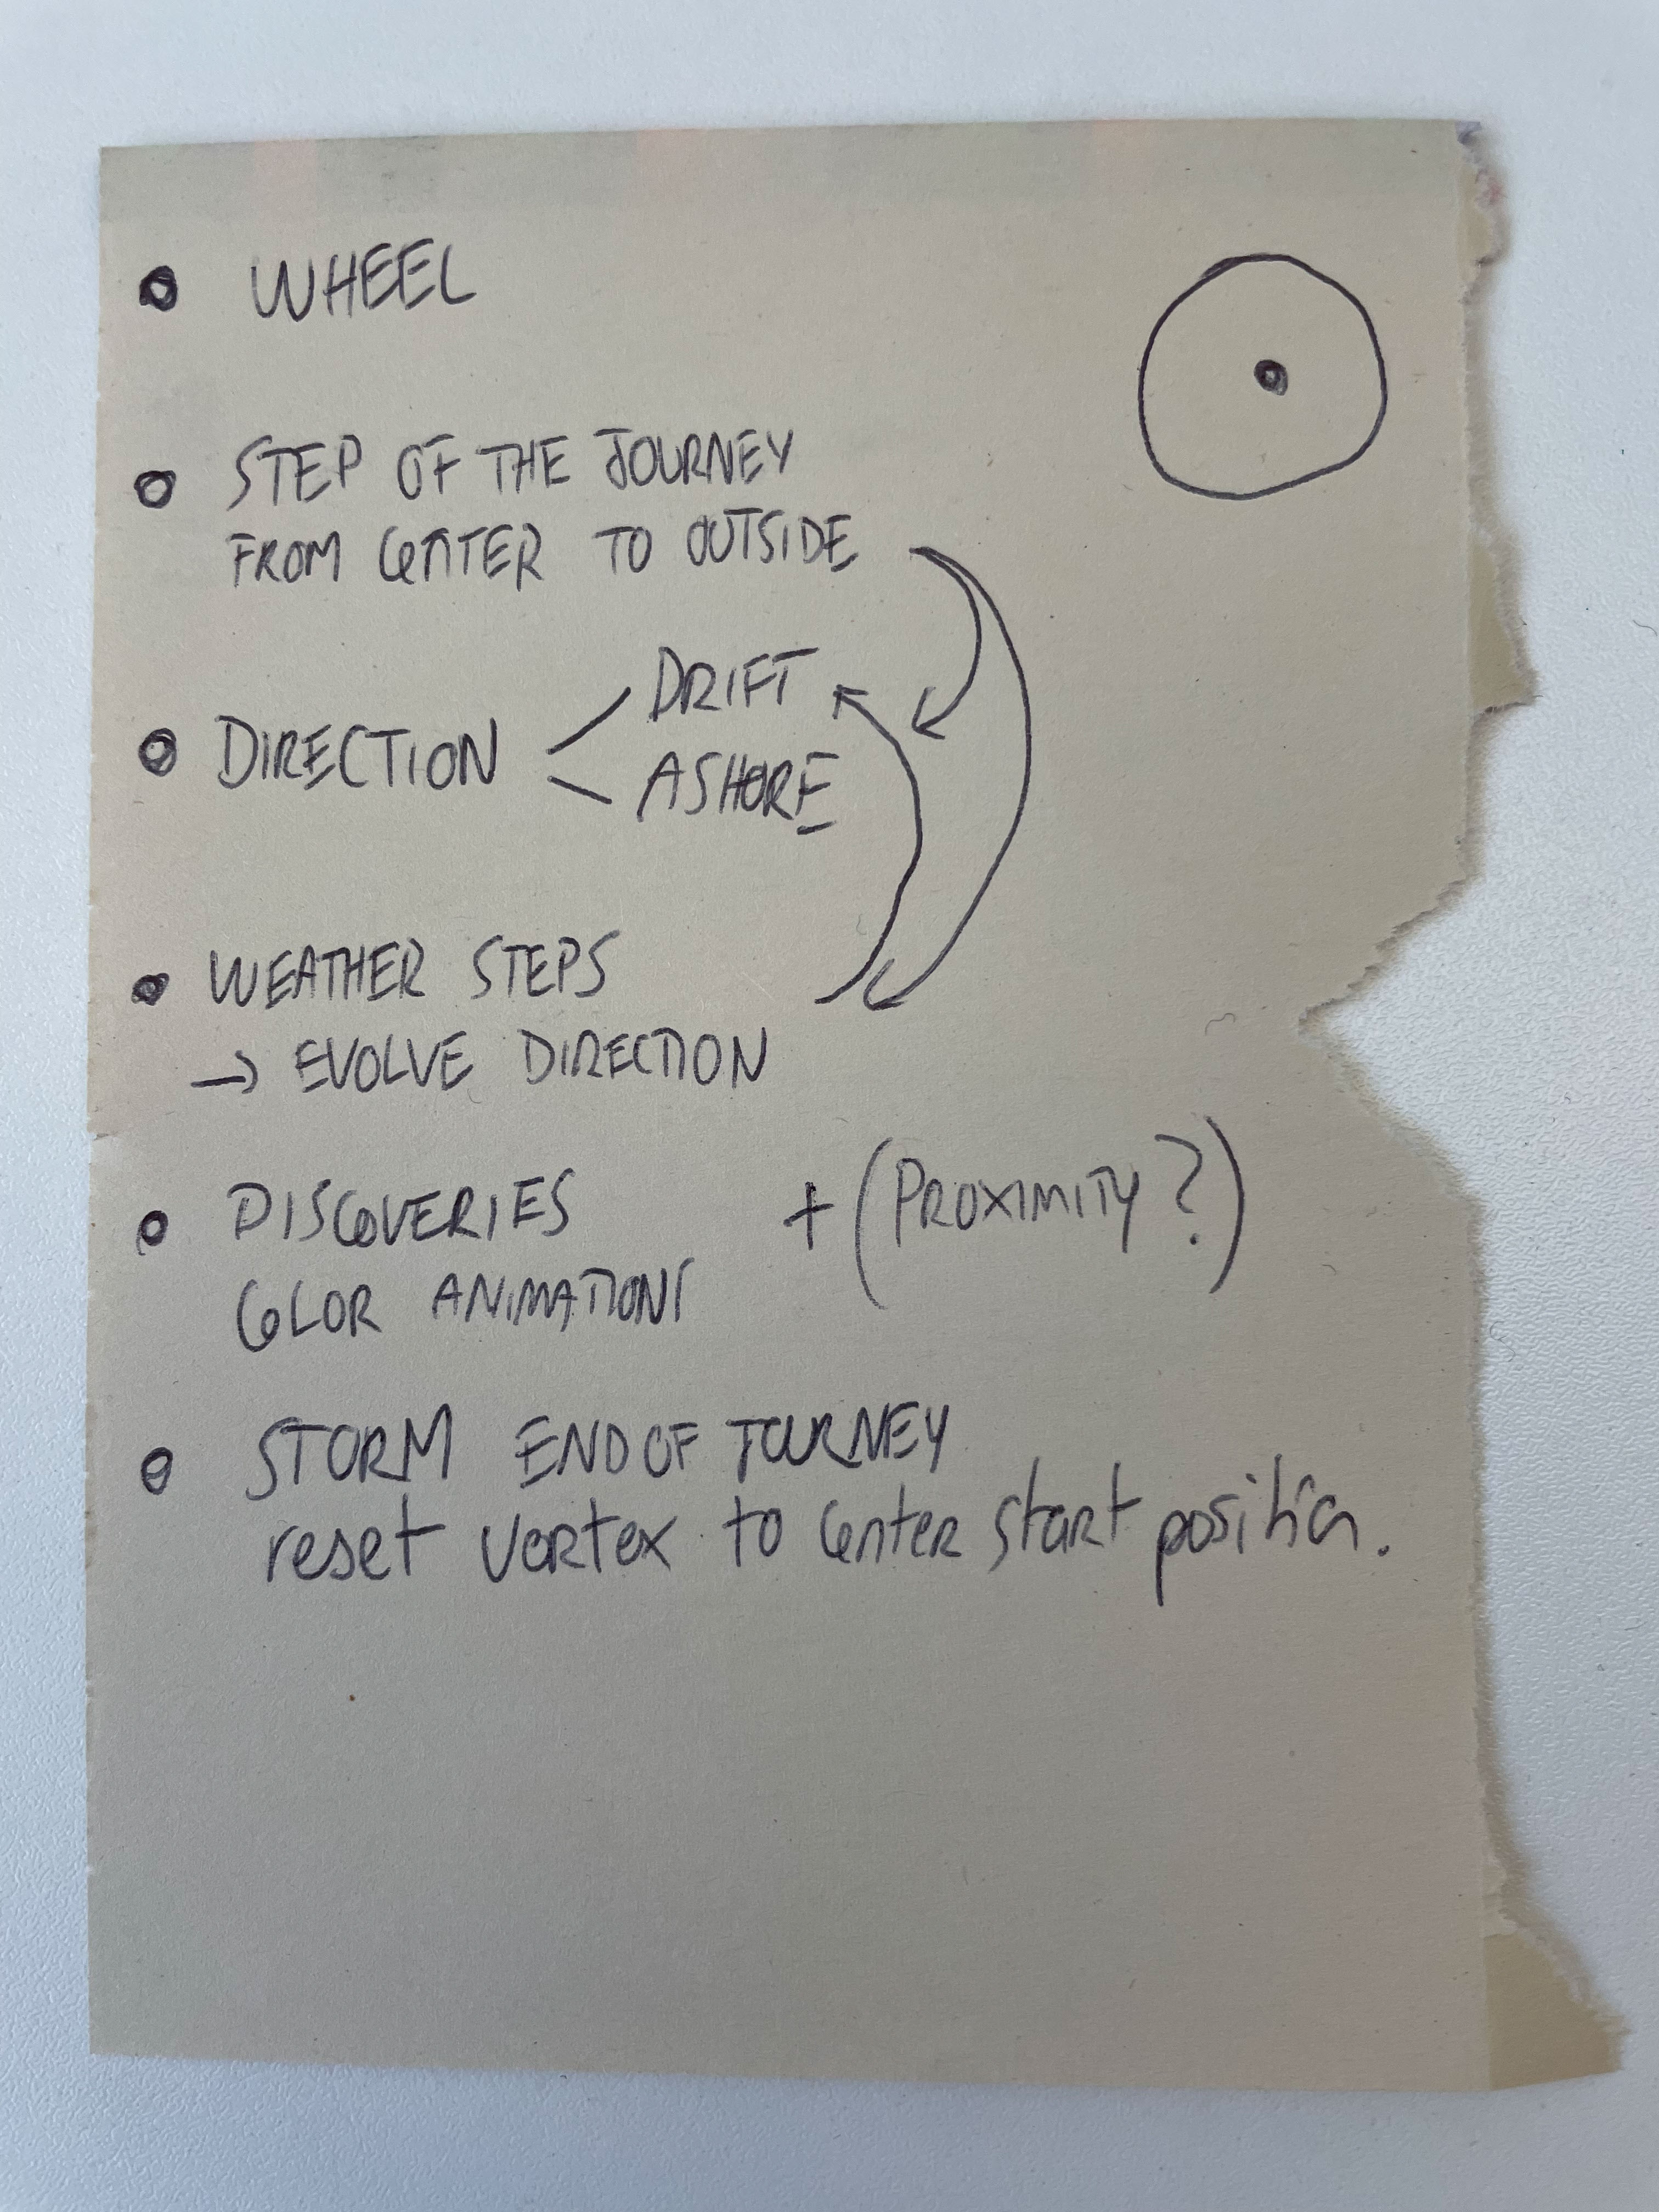 WHEEL
STEP OF THE JOURNEY
FROM CENTER TO OUTSIDE
DIRECTION
DRIFT
ASHORE
WEATHER STEPS
→ EVOLVE DIRECTION
DISCOVERIES + (PROXIMITY?)
COLOR ANIMATIONS
STORM END OF JOURNEY
reset vortex to center start position.